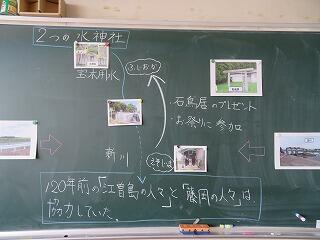 2つの水神社
ふじおか
玉木用水
・石鳥居のプレゼント
・お祭りに参加
新川
えそじま
120年前の「江曽島の人々」と「藤岡の人々」は、
協力していた。